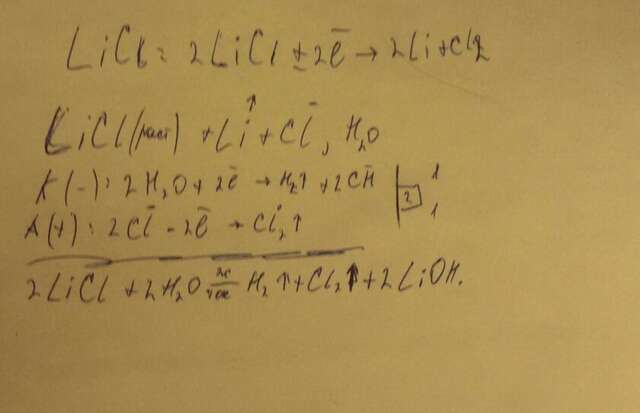 LiCl: 2LiCl ± 2ē → 2Li + Cl2
LiCl (раст) + Li↑ + Cl⁻, H₂O
K(-): 2H₂O + 2ē → H₂↑ + 2CH̄ | 2 | 1
A(+): 2Cl̄ - 2ē → Cl₂↑ | 1
2LiCl + 2H₂O эл/ток H₂↑ + Cl₂↑ + 2LiOH.